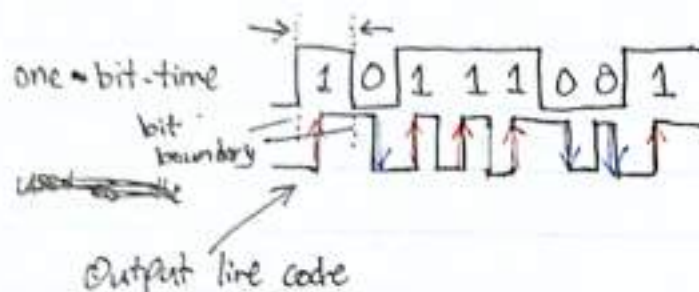 one-bit-time
1 0 1 1 1 0 0 1
bit
boundary
Output line code